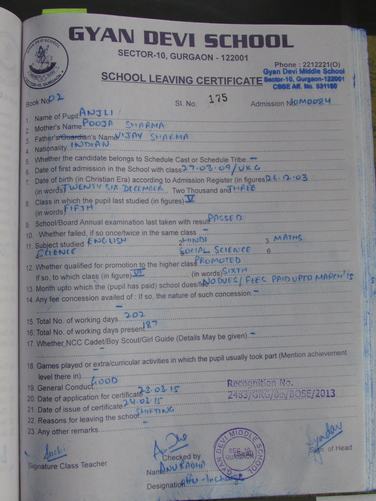 GYAN DEVI SCHOOL
SECTOR-10, GURGAON - 122001
Phone : 2212221(O)
Gyan Devi Middle School
Sector-10, Gurgaon-122001
CBSE Aff. No. 531180
SCHOOL LEAVING CERTIFICATE
Book No. 02 Sl. No. 175 Admission No M0084
1. Name of Pupil ANJLI
2. Mother's Name POOJA SHARMA
3. Father's/Guardian's Name VIJAY SHARMA
4. Nationality INDIAN
5. Whether the candidate belongs to Schedule Cast or Schedule Tribe. -
6. Date of first admission in the School with class 27-03-09/UKG
7. Date of birth (in Christian Era) according to Admission Register (in figures) 26.12.03
(in words) TWENTY SIX DECEMBER Two Thousand and THREE
8. Class in which the pupil last studied (in figures) V
(in words) FIFTH
9. School/Board Annual examination last taken with result PASSED
10. Whether failed, if so once/twice in the same class -
11. Subject studied ENGLISH 2 HINDI 3 MATHS
SCIENCE SOCIAL SCIENCE 6
12. Whether qualified for promotion to the higher class PROMOTED
If so, to which class (in figure) VI (in words) SIXTH
13. Month upto which the (pupil has paid) school dues NO DUES/FEES PAID UPTO MARCH'15
14. Any fee concession availed of : if so, the nature of such concession -
15. Total No. of working days 202
16. Total No. of working days present 187
17. Whether NCC Cadet/Boy Scout/Girl Guide (Details May be given) -
18. Games played or extra/curricular activities in which the pupil usually took part (Mention achievement
level there in) -
19. General Conduct GOOD
20. Date of application for certificate 23.03.15
21. Date of issue of certificate 24.03.15
22. Reasons for leaving the school SHIFTING
23. Any other remarks -
Recognition No.
2463/GRG/Bo/BOSE/2013
Signature Class Teacher
Checked by
Name ANURADHA
Designation
Sign. of Head
GYAN DEVI MIDDLE SCHOOL